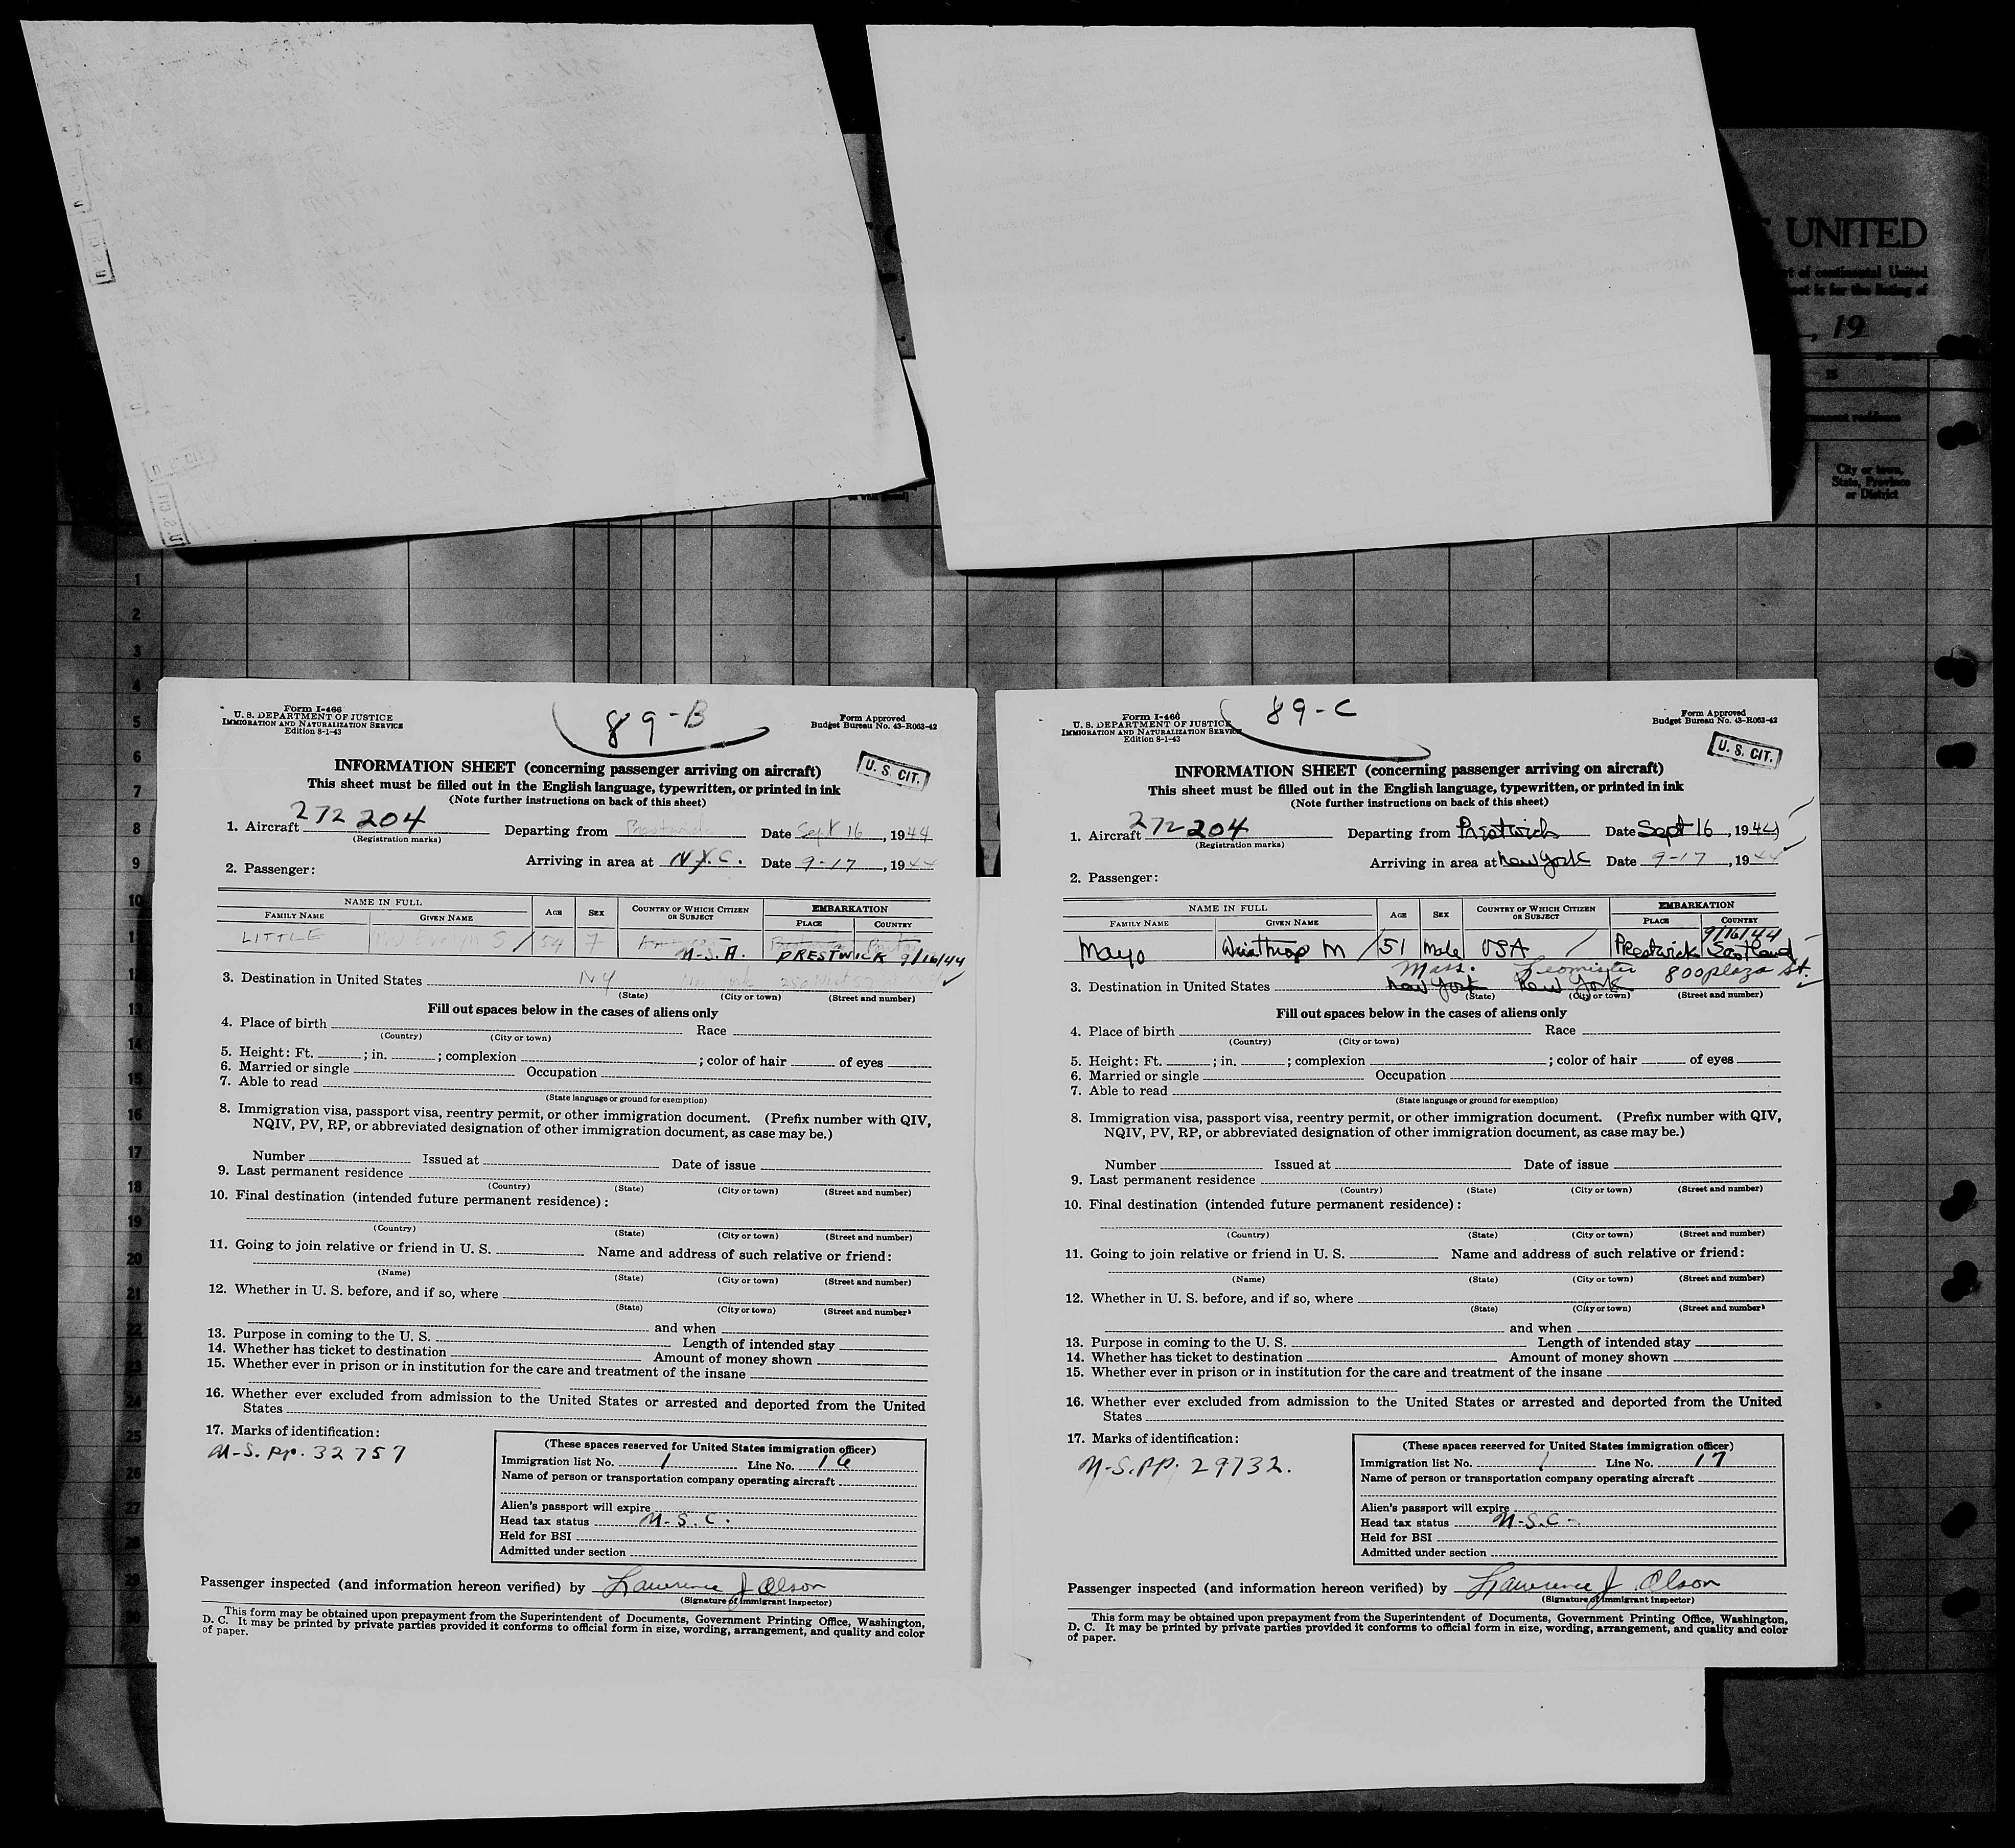 UNITED
of continental United
is for the listing of
, 19
15
residence
City or town,
State, Province
or District
1
2
3
4
5
6
7
8
9
10
11
13
14
15
16
17
18
19
20
21
22
23
24
25
26
27
28
29
Form I-466
U. S. DEPARTMENT OF JUSTICE
IMMIGRATION AND NATURALIZATION SERVICE
Edition 8-1-43
89-B
Form Approved
Budget Bureau No. 43-R063-42
U. S. CIT.
INFORMATION SHEET (concerning passenger arriving on aircraft)
This sheet must be filled out in the English language, typewritten, or printed in ink
(Note further instructions on back of this sheet)
1. Aircraft 272204 Departing from Prestwick Date Sept 16, 1944
(Registration marks)
Arriving in area at N.Y.C. Date 9-17, 1944
2. Passenger:
NAME IN FULL AGE SEX COUNTRY OF WHICH CITIZEN OR SUBJECT EMBARKATION
FAMILY NAME GIVEN NAME PLACE COUNTRY
LITTLE Evelyn S / 54 F
U.S.A. PRESTWICK 9/16/44
3. Destination in United States NY
(State) (City or town) (Street and number)
Fill out spaces below in the cases of aliens only
4. Place of birth Race
(Country) (City or town)
5. Height: Ft. ; in. ; complexion ; color of hair of eyes
6. Married or single Occupation
7. Able to read
(State language or ground for exemption)
8. Immigration visa, passport visa, reentry permit, or other immigration document. (Prefix number with QIV,
NQIV, PV, RP, or abbreviated designation of other immigration document, as case may be.)
Number Issued at Date of issue
9. Last permanent residence
(Country) (State) (City or town) (Street and number)
10. Final destination (intended future permanent residence):
(Country) (State) (City or town) (Street and number)
11. Going to join relative or friend in U. S. Name and address of such relative or friend:
(Name) (State) (City or town) (Street and number)
12. Whether in U. S. before, and if so, where
(State) (City or town) (Street and number)
and when
13. Purpose in coming to the U. S. Length of intended stay
14. Whether has ticket to destination Amount of money shown
15. Whether ever in prison or in institution for the care and treatment of the insane
16. Whether ever excluded from admission to the United States or arrested and deported from the United
States
17. Marks of identification:
U.S. PP. 32757
(These spaces reserved for United States immigration officer)
Immigration list No. 1 Line No. 16
Name of person or transportation company operating aircraft
Alien's passport will expire
Head tax status U.S.C.
Held for BSI
Admitted under section
Passenger inspected (and information hereon verified) by Lawrence J Olson
(Signature of immigrant inspector)
This form may be obtained upon prepayment from the Superintendent of Documents, Government Printing Office, Washington,
D. C. It may be printed by private parties provided it conforms to official form in size, wording, arrangement, and quality and color
of paper.
Form I-466
U. S. DEPARTMENT OF JUSTICE
IMMIGRATION AND NATURALIZATION SERVICE
Edition 8-1-43
89-C
Form Approved
Budget Bureau No. 43-R063-42
U. S. CIT.
INFORMATION SHEET (concerning passenger arriving on aircraft)
This sheet must be filled out in the English language, typewritten, or printed in ink
(Note further instructions on back of this sheet)
1. Aircraft 272204 Departing from Prestwick Date Sept 16, 1944
(Registration marks)
Arriving in area at New York Date 9-17, 1944
2. Passenger:
NAME IN FULL AGE SEX COUNTRY OF WHICH CITIZEN OR SUBJECT EMBARKATION
FAMILY NAME GIVEN NAME PLACE COUNTRY
9/16/44
Mayo Winthrop M / 51 Male USA / Prestwick Scotland
Mass. Leominster 800 plaza St.
3. Destination in United States New York New York
(State) (City or town) (Street and number)
Fill out spaces below in the cases of aliens only
4. Place of birth Race
(Country) (City or town)
5. Height: Ft. ; in. ; complexion ; color of hair of eyes
6. Married or single Occupation
7. Able to read
(State language or ground for exemption)
8. Immigration visa, passport visa, reentry permit, or other immigration document. (Prefix number with QIV,
NQIV, PV, RP, or abbreviated designation of other immigration document, as case may be.)
Number Issued at Date of issue
9. Last permanent residence
(Country) (State) (City or town) (Street and number)
10. Final destination (intended future permanent residence):
(Country) (State) (City or town) (Street and number)
11. Going to join relative or friend in U. S. Name and address of such relative or friend:
(Name) (State) (City or town) (Street and number)
12. Whether in U. S. before, and if so, where
(State) (City or town) (Street and number)
and when
13. Purpose in coming to the U. S. Length of intended stay
14. Whether has ticket to destination Amount of money shown
15. Whether ever in prison or in institution for the care and treatment of the insane
16. Whether ever excluded from admission to the United States or arrested and deported from the United
States
17. Marks of identification:
U.S. PP. 29732.
(These spaces reserved for United States immigration officer)
Immigration list No. 1 Line No. 17
Name of person or transportation company operating aircraft
Alien's passport will expire
Head tax status U.S.C.
Held for BSI
Admitted under section
Passenger inspected (and information hereon verified) by Lawrence J Olson
(Signature of immigrant inspector)
This form may be obtained upon prepayment from the Superintendent of Documents, Government Printing Office, Washington,
D. C. It may be printed by private parties provided it conforms to official form in size, wording, arrangement, and quality and color
of paper.